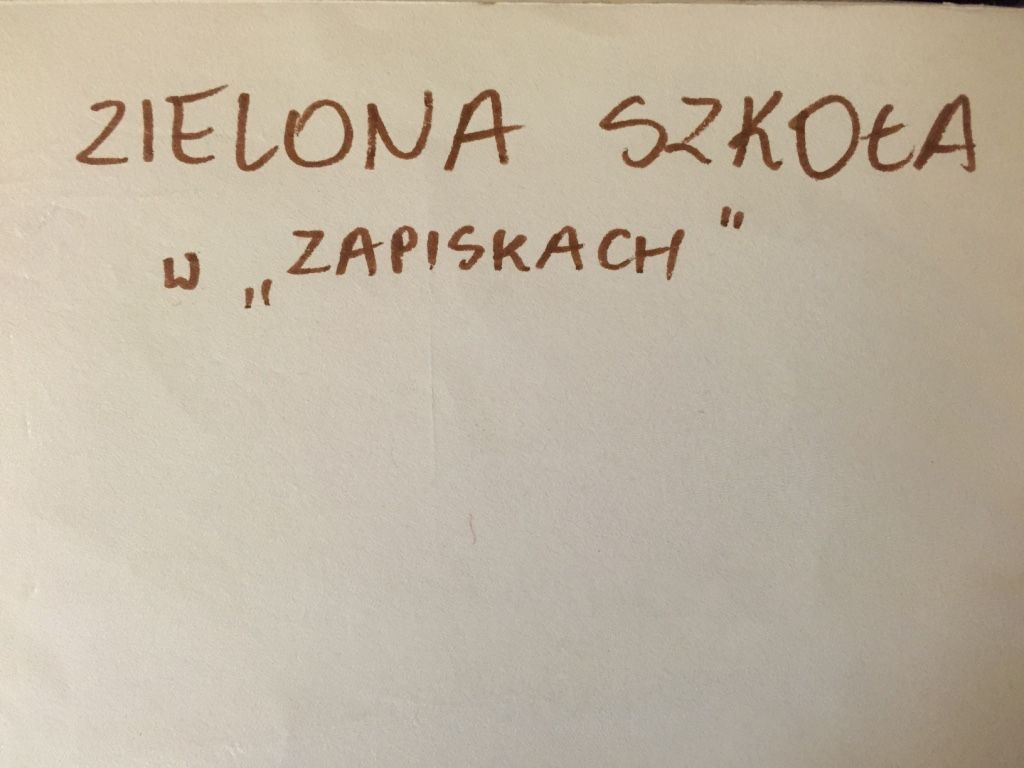 ZIELONA SZKOŁA
w „ZAPISKACH"